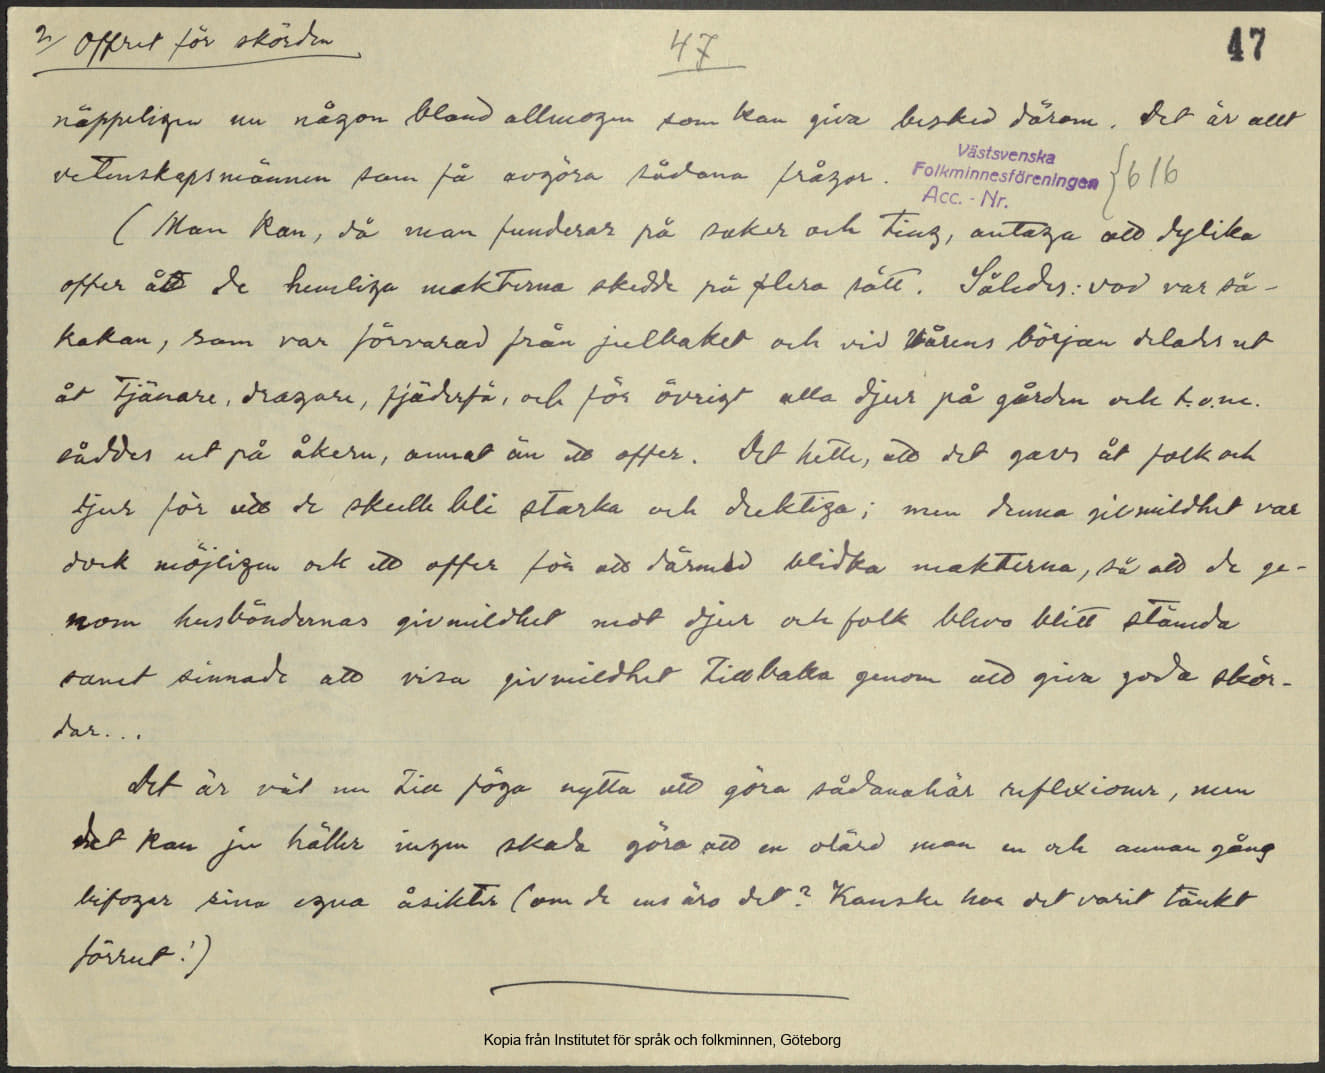 2/ Offret för skörden
47
47
näppeligen nu någon bland allmogen som kan giva besked därom. Det är allt
vetenskapsmännen som få avgöra sådana frågor.
Västsvenska
Folkminnesföreningen
Acc. - Nr.
616
(Man kan, då man funderar på saker och ting, antaga att dylika
offer åt de hemliga makterna skedde på flera sätt. Således: vad var så-
kakan, som var förvarad från julbaket och vid vårens början delades ut
åt tjänare, dragare, fjäderfä, och för övrigt alla djur på gården och t.o.m.
såddes ut på åkern, annat än ett offer. Det hette, att det gavs åt folk och
djur för att de skulle bli starka och drektiga; men denna givmildhet var
dock möjligen ock ett offer för att därmed blidka makterna, så att de ge-
nom husböndernas givmildhet mot djur och folk blevo blitt stämda
samt sinnade att visa givmildhet tillbaka genom att giva goda skör-
dar...
Det är väl nu till föga nytta att göra sådana här reflexioner, men
det kan ju häller ingen skada göra att en olärd man en och annan gång
bifogar sina egna åsikter (om de ens äro det? Kanske har det varit tänkt
förrut!)
Kopia från Institutet för språk och folkminnen, Göteborg